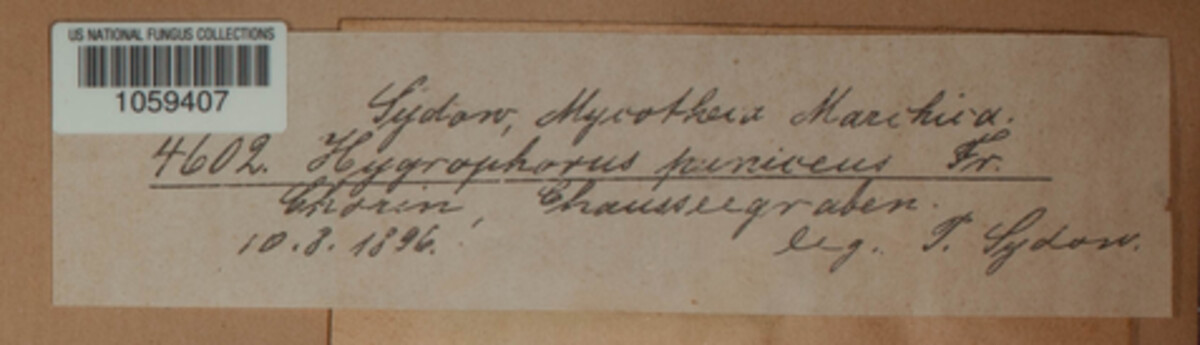 US NATIONAL FUNGUS COLLECTIONS
1059407
Sydow, Mycotheca Marchica.
4602. Hygrophorus puniceus Fr.
Chorin, Chausseegraben.
10.8.1896. leg. P. Sydow.